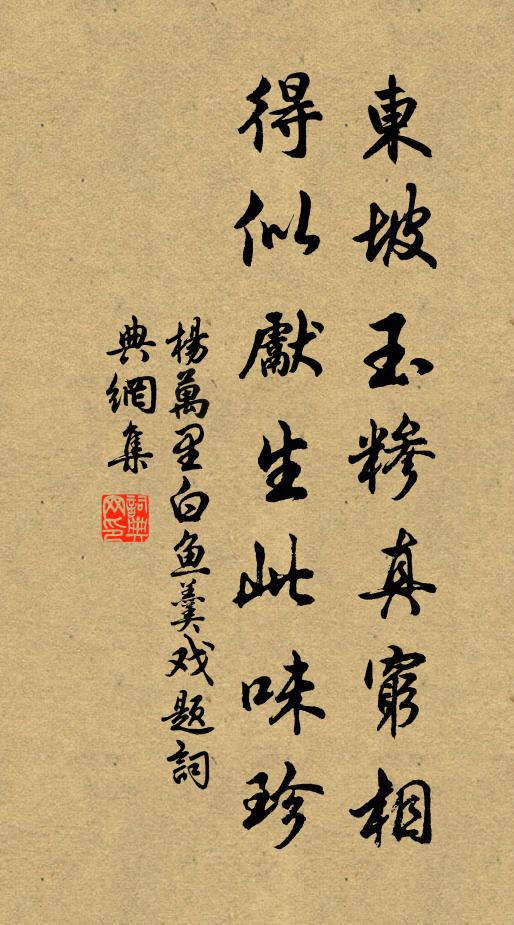 東坡玉糝真窮相
得似獻生此味珍
楊萬里白魚羹戏題詞
典網集
詞典網印